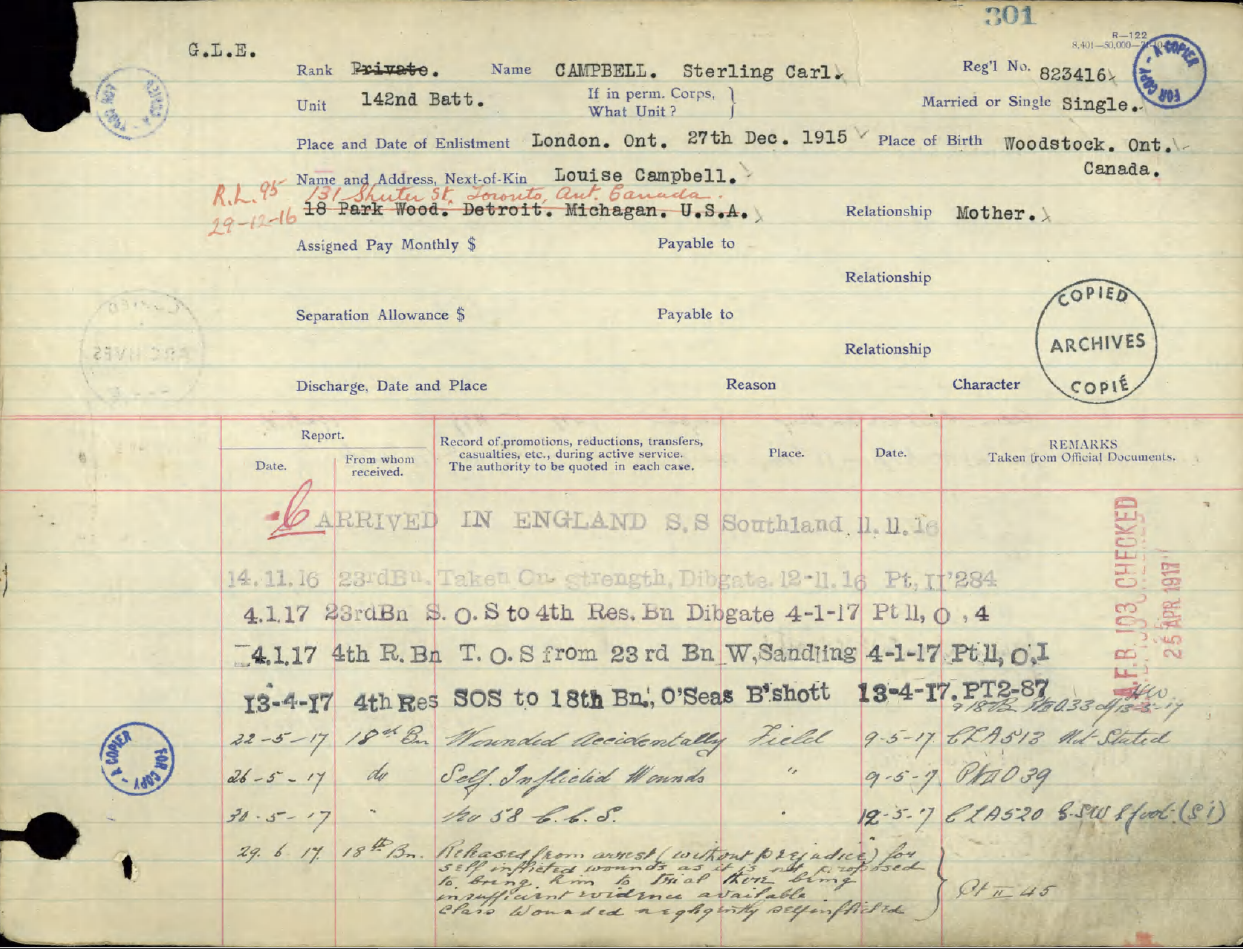 301
R—122
8,401—50,000—
G.L.E.
Rank Private. Name CAMPBELL. Sterling Carl. Reg'l No. 823416
FOR COPY - A COPIER
Unit 142nd Batt. If in perm. Corps, What Unit? Married or Single Single.
Place and Date of Enlistment London. Ont. 27th Dec. 1915 Place of Birth Woodstock. Ont.
Canada.
Name and Address, Next-of-Kin Louise Campbell.
R.L. 95 131 Shuter St, Toronto, Ont. Canada.
29-12-16 18 Park Wood. Detroit. Michagan. U.S.A. Relationship Mother.
Assigned Pay Monthly $ Payable to
Relationship
Separation Allowance $ Payable to
Relationship
COPIED
ARCHIVES
COPIÉ
Discharge, Date and Place Reason Character
Report.
Date. From whom received. Record of promotions, reductions, transfers, casualties, etc., during active service. The authority to be quoted in each case. Place. Date. REMARKS Taken from Official Documents.
ARRIVED IN ENGLAND S.S Southland 11.11.16
A.F.B. 103 CHECKED
25 APR 1917
14.11.16 23rdBn. Taken On strength, Dibgate. 12-11.16 Pt, II'284
4.1.17 23rdBn S.O.S to 4th Res. Bn Dibgate 4-1-17 Pt 11, O, 4
4.1.17 4th R. Bn T.O.S from 23rd Bn W, Sandling 4-1-17 Pt 11, O, 1
13-4-17 4th Res SOS to 18th Bn., O'Seas B'shott 13-4-17. PT2-87
22-5-17 18th Bn Wounded Accidentally Field 9-5-17 CLA513 Not Stated
26-5-17 do Self. Inflicted Wounds " 9-5-17 Pt II O 39
30-5-17 " No 58 C.C.S. " 12-5-17 CLA520 G.S.W. foot. (S.I)
29.6.17. 18th Bn. Released from arrest (without prejudice) for
self inflicted wounds as it is not proposed
to bring him to trial there being
insufficient evidence available. Pt II 45
Class Wounded negligently selfinflicted
FOR COPY - A COPIER